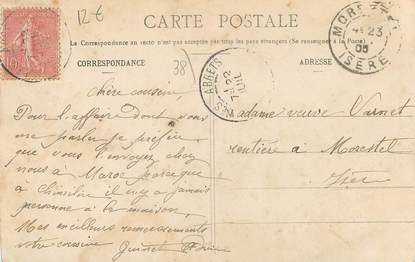 12 €
CARTE POSTALE
La Correspondance au recto n'est pas acceptée par tous les pays étrangers (Se renseigner à la Poste)
CORRESPONDANCE
ADRESSE
38
MORESTEL
23
05
ISÈRE
LES ABRETS
22
JUIL
10
Chère cousine,
Pour l'affaire dont vous
me parlez je préfère
que vous l'envoyez chez
nous à Maroz parce que
à Chimilin il n'y a jamais
personne à la maison,
Mes meilleurs remerciements
votre cousine Guinet
Madame veuve Varnet
rentière à Morestel
Isère